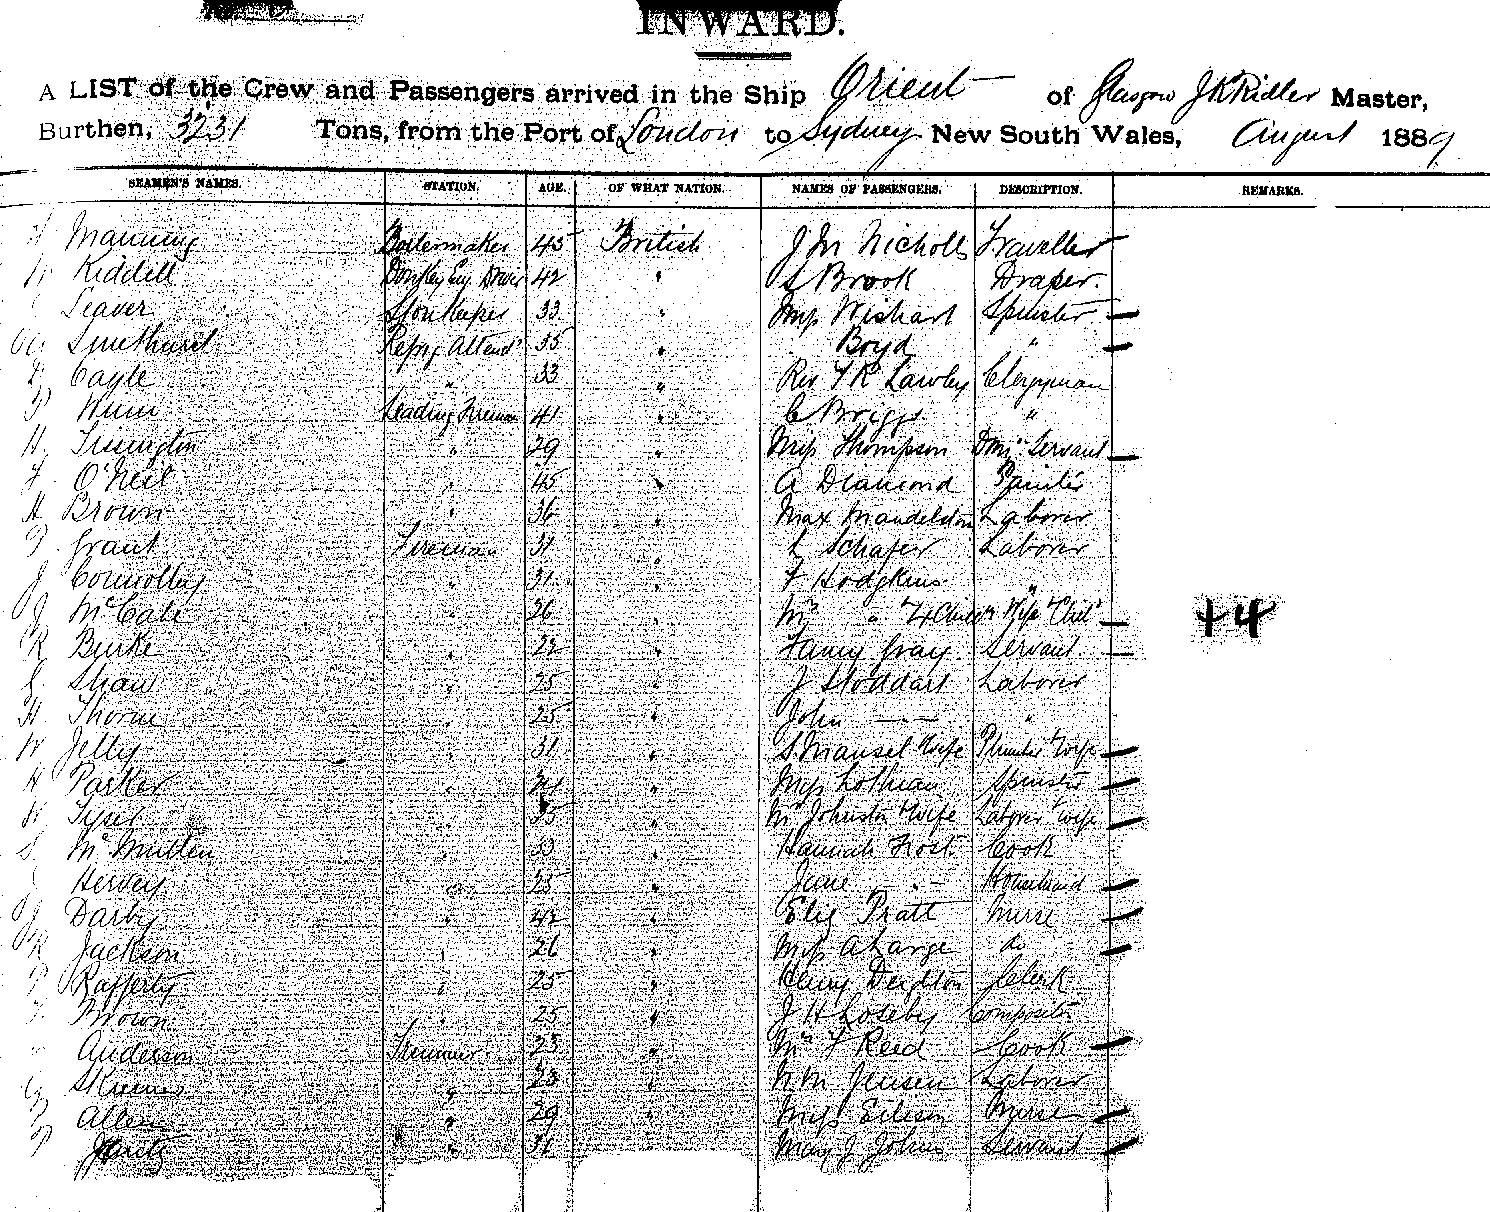 INWARD.
A LIST of the Crew and Passengers arrived in the Ship Orient of Glasgow J K Ridler Master,
Burthen, 3231 Tons, from the Port of London to Sydney New South Wales, August 1889
SEAMEN'S NAMES. STATION. AGE. OF WHAT NATION. NAMES OF PASSENGERS. DESCRIPTION. REMARKS.
Manning Boilermaker 45 British J M Nicholls Traveller
Riddell Donkey Eng. Driver 42 " S Brook Draper.
Leaver Storekeeper 33 " Miss Wishart Spinster
Smethurst 35 " Boyd "
Cayle " 33 " Rev F R Lawley Clergyman
Leading Fireman 41 " C Briggs "
H. " 29 " Miss Thompson Dom. Servant
F O'Neil " 45 " A Diamond Painter
H Brown " 36 " Max Mandelston Laborer
Grant Fireman 31 " L Schafer Laborer
J Connolly " 31 " F Hodgkins "
J McCabe " 26 " Mrs " + 4 Wife
R Burke " 22 " Fanny Gray. Servant.
Shaw " 25 " J Stoddart Laborer
H Thorne " 25 " John "
W Jelly " 31 " S. Mansel + wife + wife
H Parker " " Miss Lothian Spinster
W " 35 " Mr Johnston + Wife Laborer + wife
S. " 33 " Hannah Frost. Cook
Hervey " 25 " Jane Housemaid
J Darby " 42 " Eliz Pratt Nurse
R Jackson " 26 " Miss A Large do
Rafferty " 25 " Henry Deighton Clerk
Brown " 25 " J H Loseby Compositor
Anderson Trimmer 23 " Mrs F Reed Cook
" 23 " N M Jensen Laborer
Allen " 29 " Miss Nurse
" " Mary J Johns Servant
44